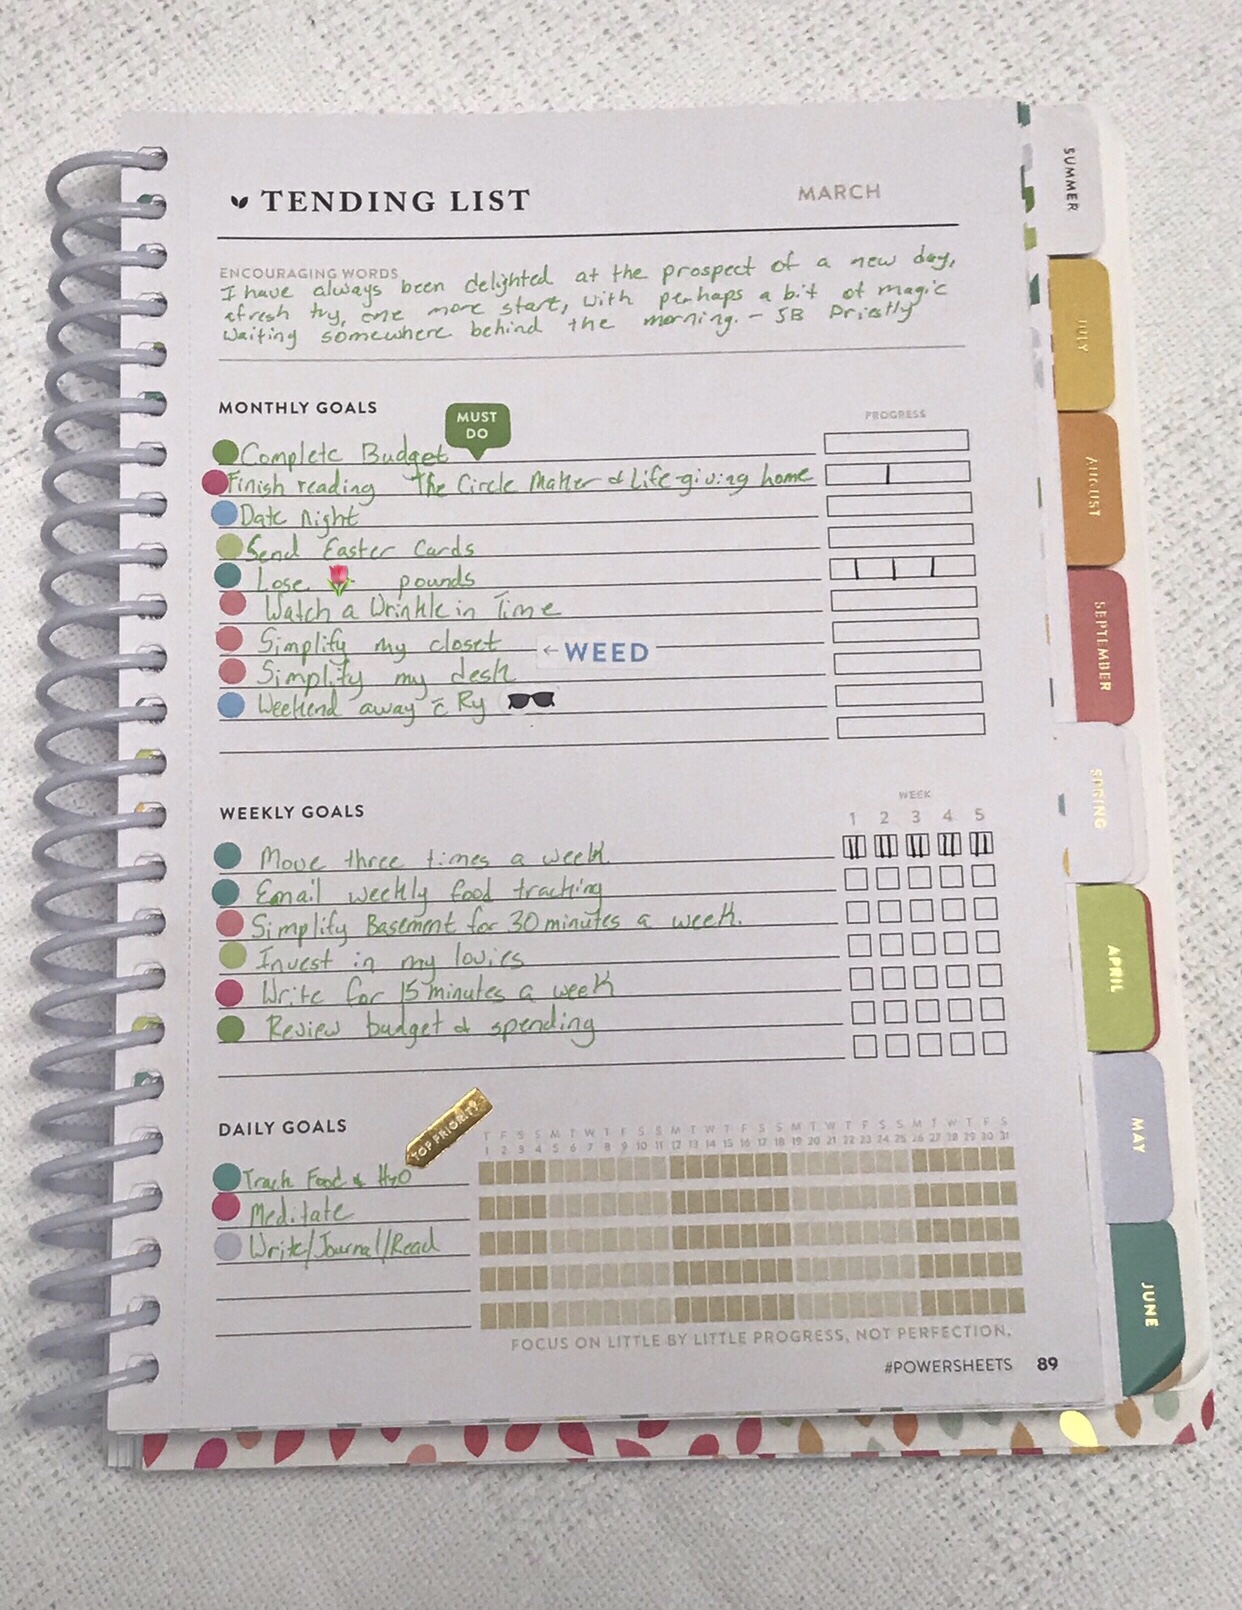 TENDING LIST MARCH
ENCOURAGING WORDS
I have always been delighted at the prospect of a new day,
afresh try, one more start, with perhaps a bit of magic
waiting somewhere behind the morning. - JB Priestly
MONTHLY GOALS
MUST
DO
PROGRESS
Complete Budget
Finish reading The Circle Maker & Life-giving home
Date night
Send Easter Cards
Lose pounds
Watch a Wrinkle in Time
Simplify my closet
← WEED
Simplify my desk
Weekend away c̄ Ry
WEEKLY GOALS
WEEK
1 2 3 4 5
Move three times a week
Email weekly food tracking
Simplify Basement for 30 minutes a week.
Invest in my lovies
Write for 15 minutes a week
Review budget & spending
DAILY GOALS
TOP PRIORITY
T F S S M T W T F S S M T W T F S S M T W T F S S M T W T F S
1 2 3 4 5 6 7 8 9 10 11 12 13 14 15 16 17 18 19 20 21 22 23 24 25 26 27 28 29 30 31
Track Food & H2O
Meditate
Write/Journal/Read
FOCUS ON LITTLE BY LITTLE PROGRESS, NOT PERFECTION.
#POWERSHEETS 89
SUMMER
JULY
AUGUST
SEPTEMBER
SPRING
APRIL
MAY
JUNE